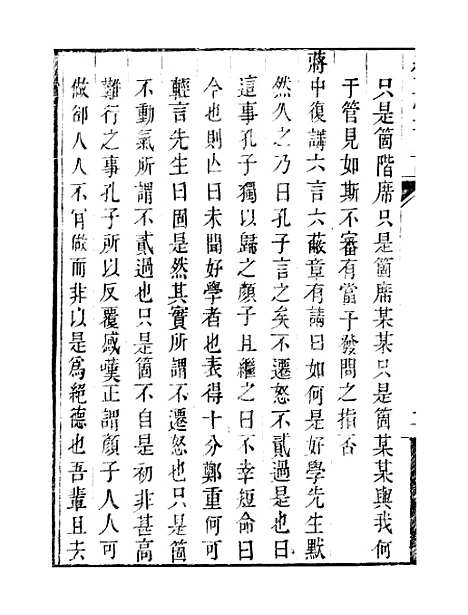 只是箇階席只是箇席某某只是箇某某與我何
于管見如斯不審有當于發問之指否
蔣中復講六言六蔽章有請曰如何是好學先生默
然久之乃曰孔子言之矣不遷怒不貳過是也曰
這事孔子獨以歸之顏子且繼之曰不幸短命曰
今也則亾曰未聞好學者也表得十分鄭重何可
輕言先生曰固是然其實所謂不遷怒也只是箇
不動氣所謂不貳過也只是箇不自是初非甚高
難行之事孔子所以反覆感嘆正謂顏子人人可
做卻人人不肯做而非以是爲絕德也吾輩且去